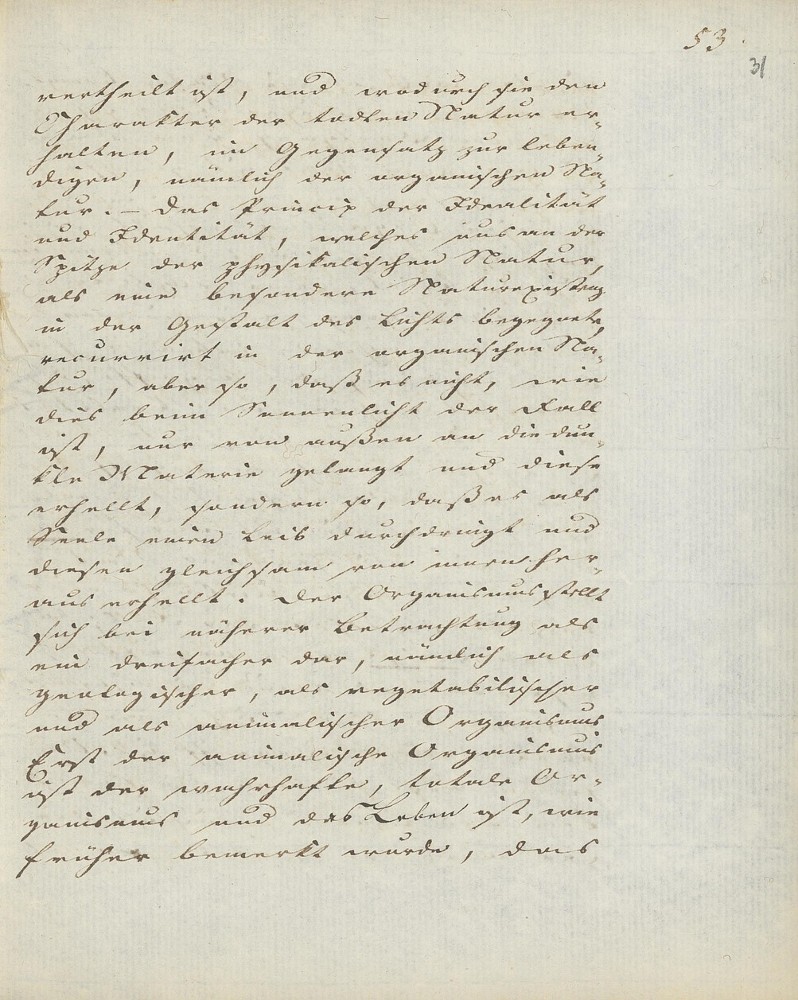 53.
31
vertheilt ist, und wodurch sie den
Charakter der todten Natur er-
halten, im Gegensatz zur leben-
digen, nämlich der organischen Na-
tur. – Das Princip der Idealität
und Identität, welches uns an der
Spitze der physikalischen Natur,
als eine besondere Naturexistenz
in der Gestalt des Lichts begegnete,
recurrirt in der organischen Na-
tur, aber so, daß es nicht, wie
dies beim Sonnenlicht der Fall
ist, nur von außen an die dun-
kle Materie gelangt und diese
erhellt, sondern so, daß es als
Seele einen Leib durchdringt und
diesen gleichsam von innen her-
aus erhellt. Der Organismus stellt
sich bei näherer Betrachtung als
ein dreifacher dar, nämlich als
geologischer, als vegetabilischer
und als animalischer Organismus
Erst der animalische Organismus
ist der wahrhafte, totale Or-
ganismus und das Leben ist, wie
früher bemerkt wurde, das